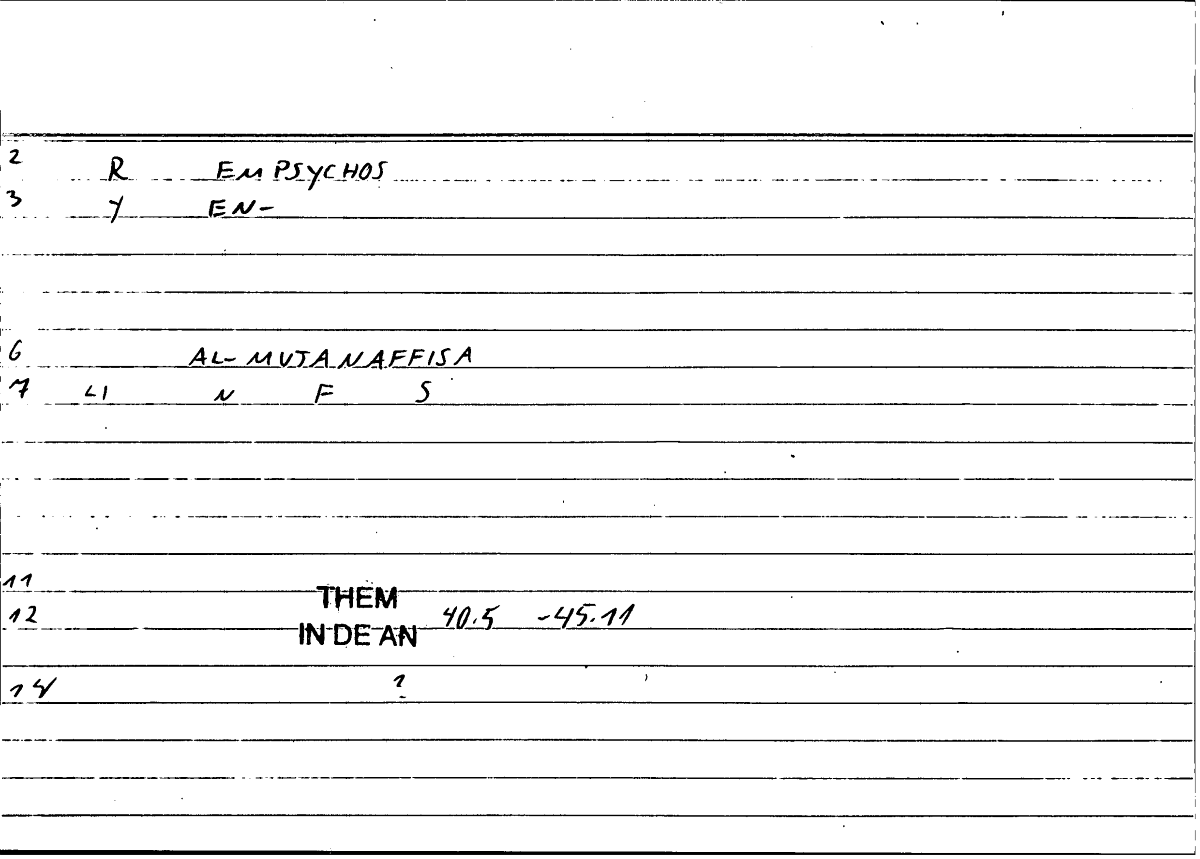 2 R EMPSYCHOS
3 Y EN-
6 AL-MUTANAFFISA
7 LI N F S
11
THEM
12 40.5 -45.11
IN DE AN
14 1